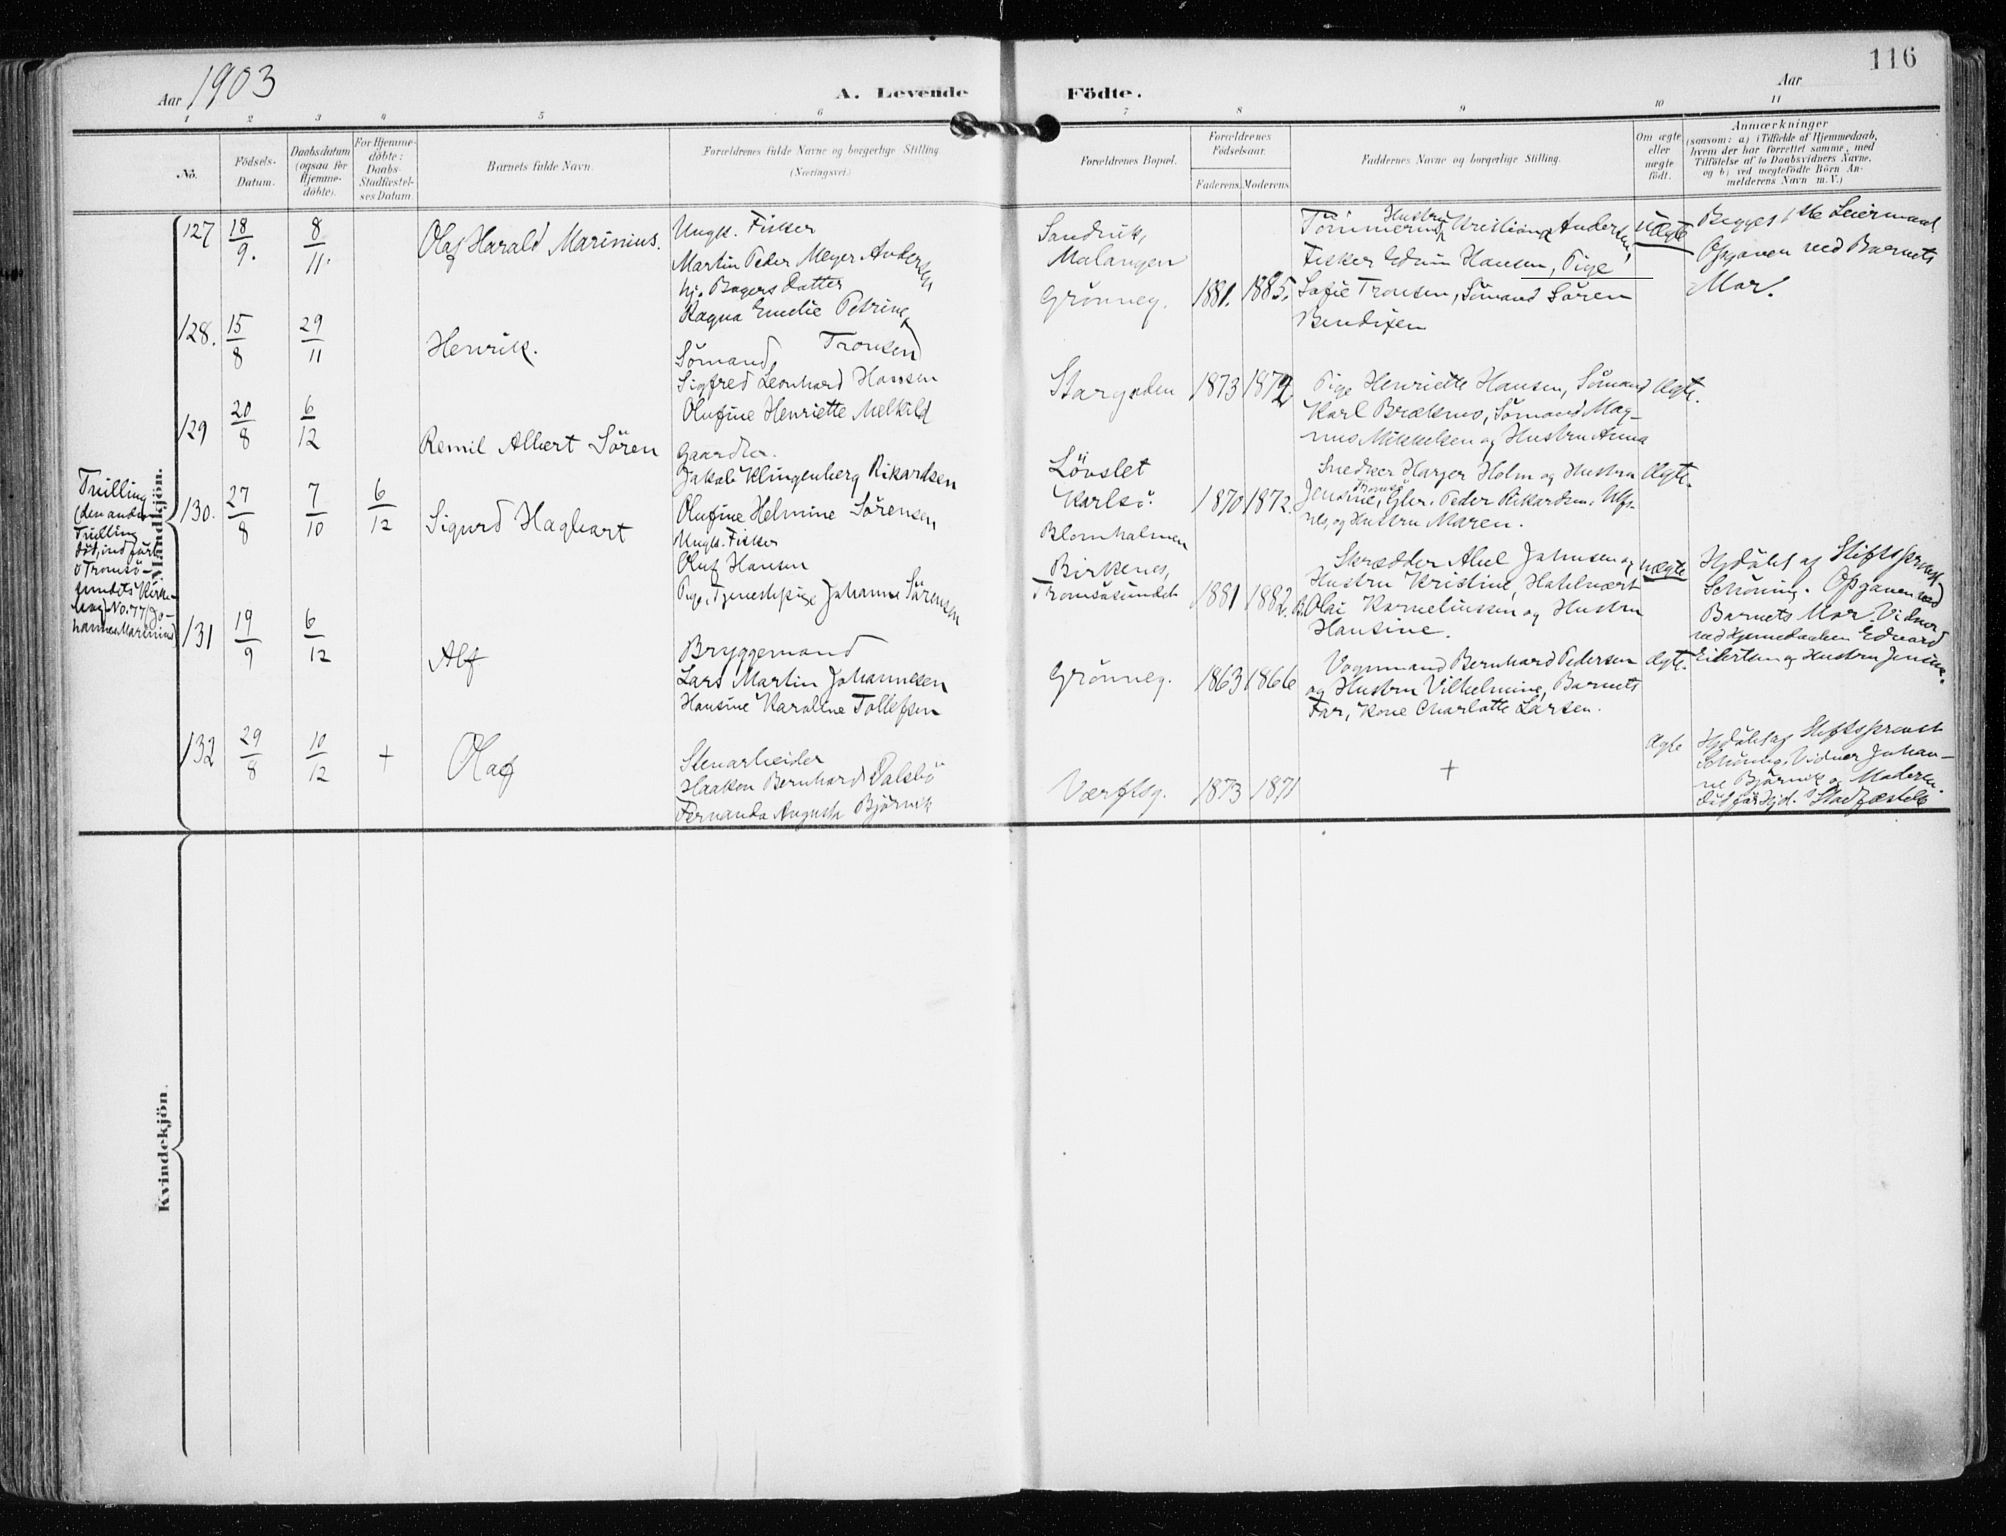 116
Aar 1903
A. Levende Födte.
Aar
1 2 3 4 5 6 7 8 9 10 11
No.
Födsels-
Datum.
Daabsdatum
(ogsaa for
Hjemme-
döbte).
For Hjemme-
döbte:
Daabs-
Stadfæstel-
ses Datum.
Barnets fulde Navn.
Forældrenes fulde Navne og borgerlige Stilling
(Næringsvei.)
Forældrenes Bopæl.
Forældrenes
Födselsaar.
Faderens. Moderens.
Faddernes Navne og borgerlige Stilling.
Om ægte
eller
uægte
födt.
Anmærkninger
(saasom: a) i Tilfælde af Hjemmedaab,
hvem der har forrettet samme, med
Tilföielse af to Daabsvidners Navne,
og b) ved uægtefödte Börn An-
melderens Navn m. V.)
Mandkjön.
127 18/9. 8/11.
Olaf Harald Marinius.
Ungk. Fisker
Martin Peder Meyer Andersen
hj. Bagersdatter
Ragna Emelie Petrine
Tronsen
Sandvik,
Malangen
Grønneg. 1881. 1885.
Hustru
Tömmermd Kristiane Andersen,
Fisker Edvin Hansen, Pige
Sofie Tronsen, Sömand Sören
Bendixen
Uægte
Begges 1ste Leiermaal
Opgaven ved Barnets
Mor.
128. 15/8 29/11
Henrik.
Sömand
Sigfred Leonhard Hansen
Olufine Henriette Melkild
Storgaden 1873 1872
Pige Henriette Hansen, Sömand
Karl Brækmo, Sömand Mag-
nus Mikkelsen og Hustru Anna
Ægte.
129 20/8 6/12
Remil Albert Sören
Gaardbr.
Jakob Klingenberg Rikardsen
Olufine Helmine Sörensen
Lövslet
Karlsö. 1870 1872.
Snedker Harjer Holm og Hustru
Tromsö
Jensine, Gbr. Peder Rikardsen, Ulfs-
nes, og Hustru Maren.
Ægte.
Tvilling
(den anden
Tvilling
död, indfört
i Tromsö-
sundets Kirke-
bog No. 77 (Jo-
hannes Marinius)
130. 27/8 7/10 6/12
Sigurd Hagbart
Ungk. Fisker
Oluf Hansen
Pige, Tjenestepige Johanne Sörensen
Blomholmen
Birkenes,
Tromsösundet 1881 1882.
Skrædder Abel Johnsen og
Hustru Kristine, Hotelvært
Olai Korneliussen og Hustru
Hansine.
uægte
Hjdöbt af Stiftsprovst
Schöning. Opgaven ved
Barnets Mor. Vidner
ved Hjemmedaaben Edvard
Eilertsen og Hustru Jensine.
131 19/9 6/12
Alf
Bryggemand
Lars Martin Johannesen
Hansine Karoline Tollefsen
Grønneg. 1863 1866
Vognmand Bernhard Pedersen
og Hustru Vilhelmine, Barnets
Far, Kone Charlotte Larsen.
Ægte.
132 29/8 10/12 +
Olaf
Stenarbeider
Haakon Bernhard Dalsbö
Fernanda Augusta Björnvik
Værftsg. 1873 1871
+
Ægte
Hjdöbt af Stiftsprovst
Schöning. Vidner Johan-
ne Björnvik og Moderen.
Död för Hjd. s Stadfæstelse
Kvindekjön.